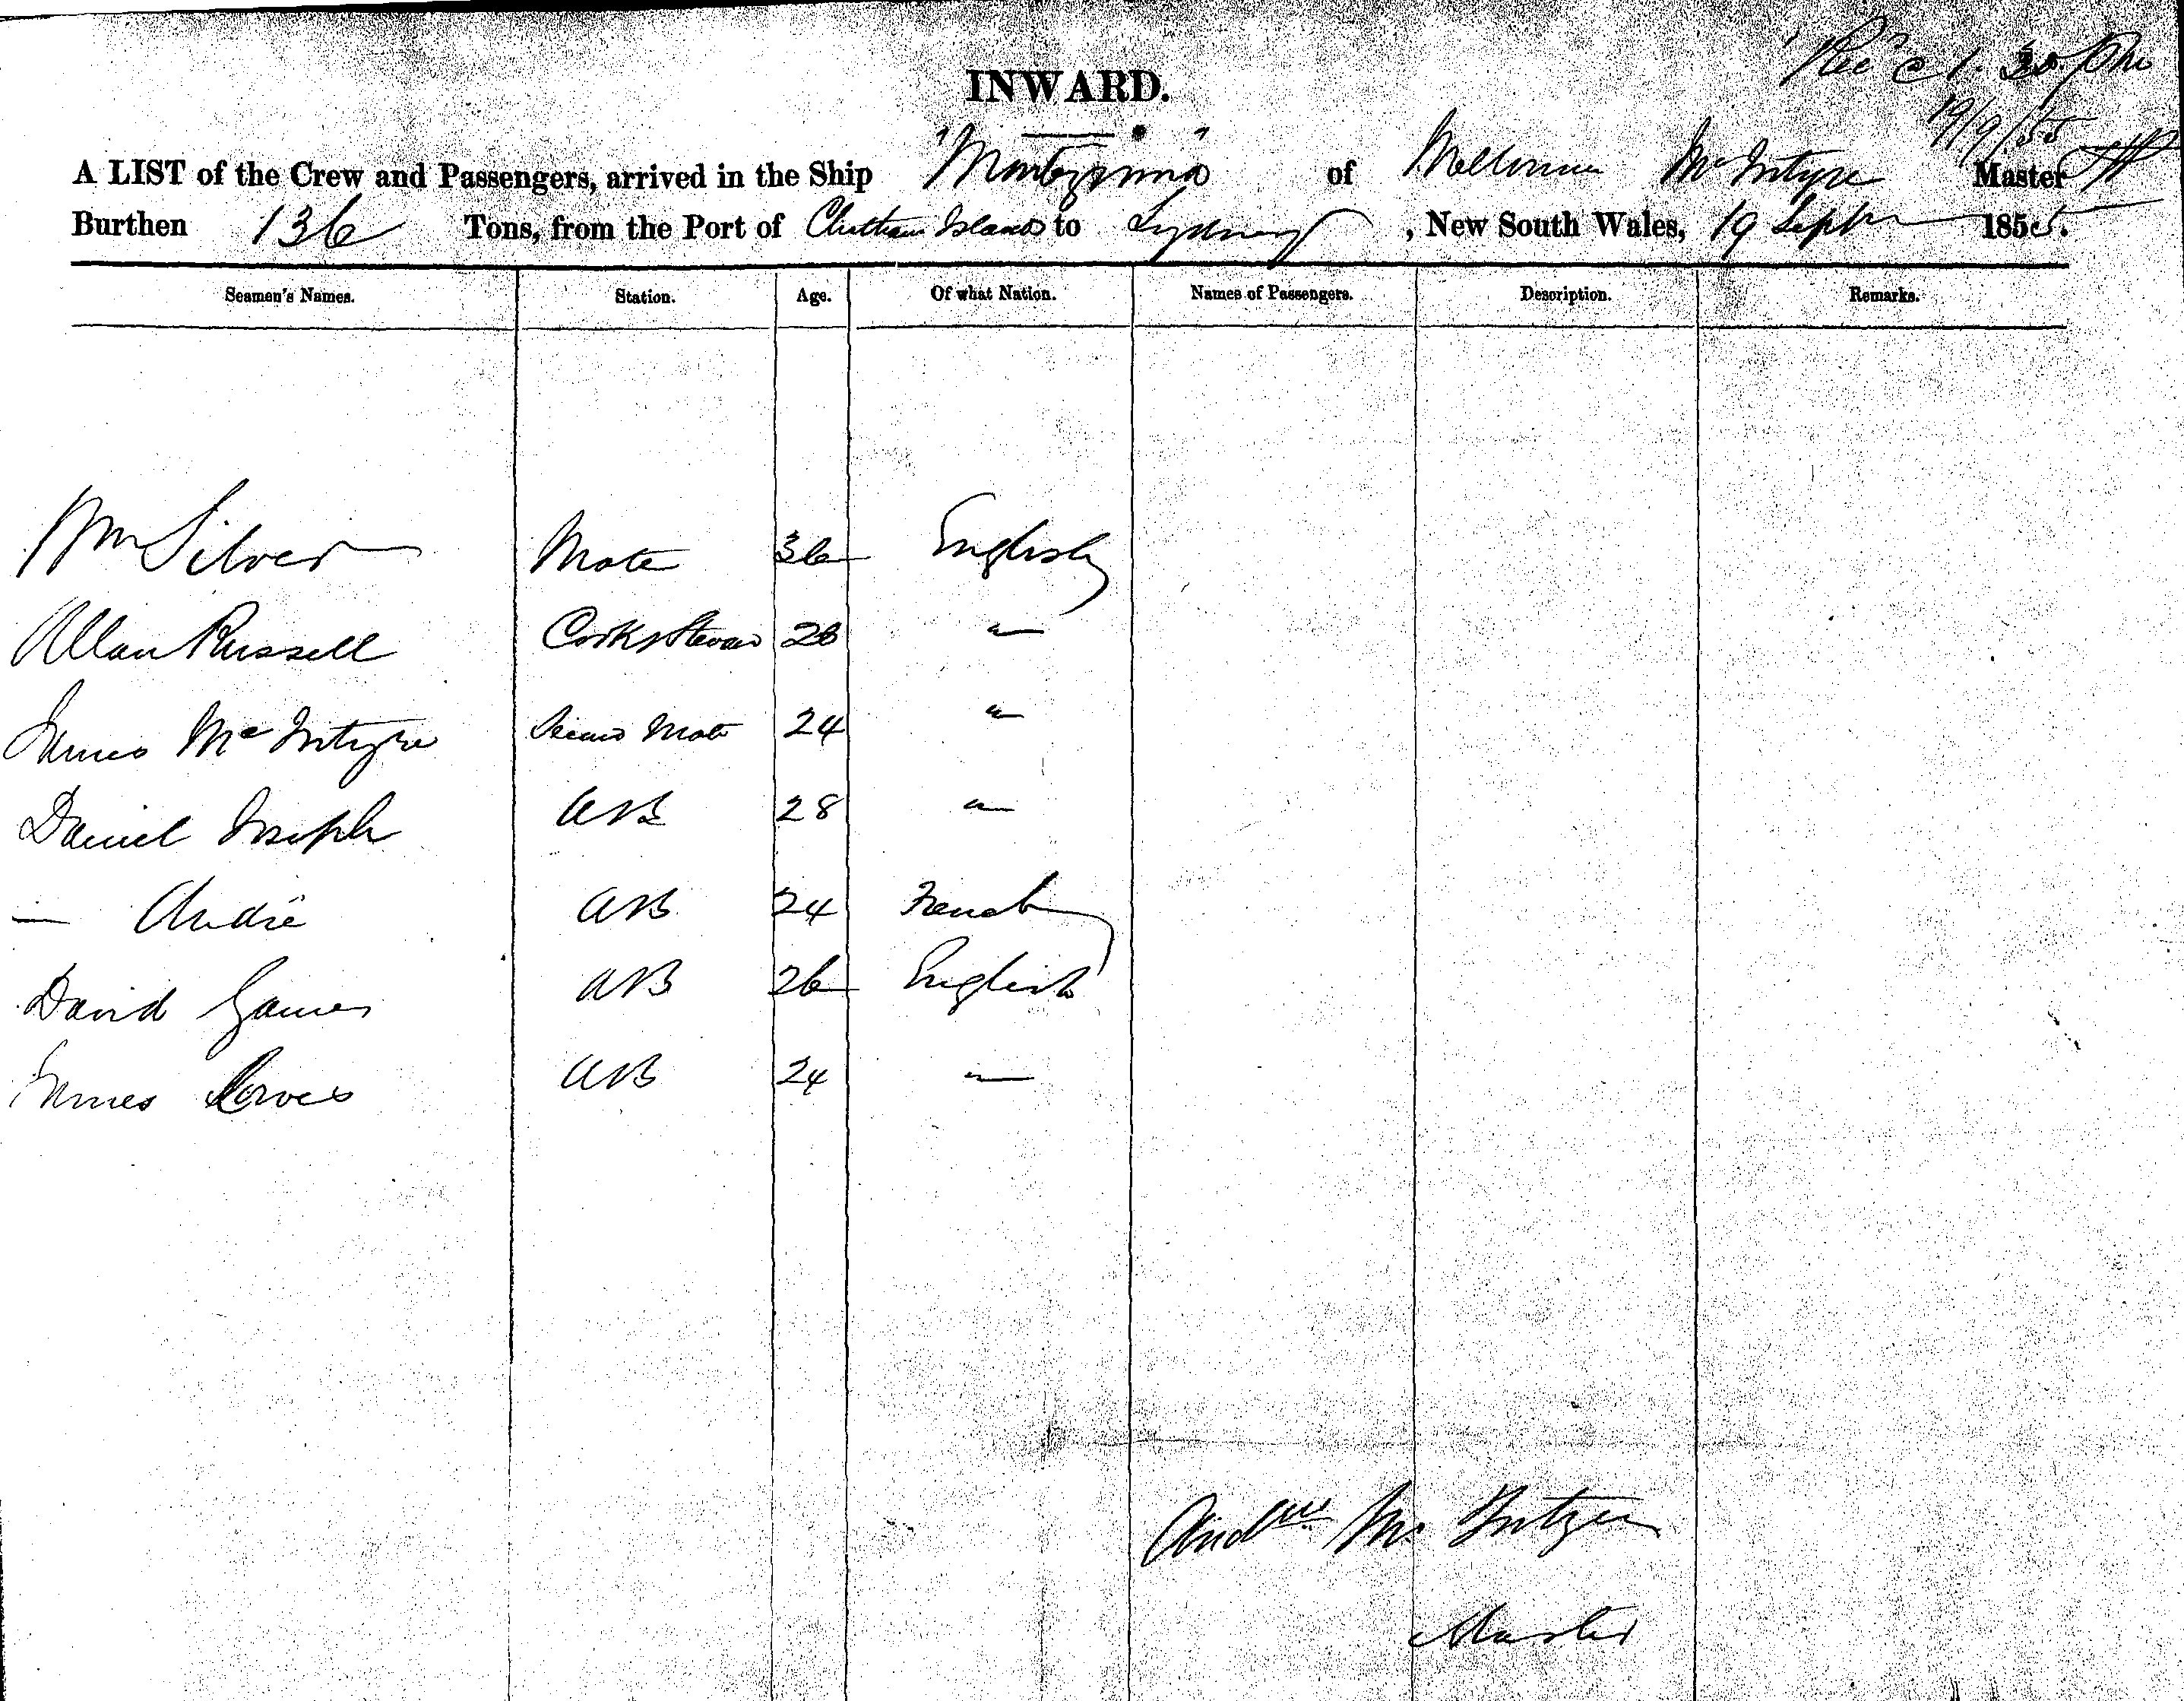 Rec'd 1.30 Pm
19/9/55
INWARD.
A LIST of the Crew and Passengers, arrived in the Ship "Montezuma" of Melbourne McIntyre Master
Burthen 136 Tons, from the Port of Chatham Islands to Sydney, New South Wales, 19 Septr 1855.
Seamen's Names. Station. Age. Of what Nation. Names of Passengers. Description. Remarks.
Wm Silver Mate 36 English
Allan Russell Cook & Steward 28 "
James McIntyre Second Mate 24 "
Daniel Joseph AB 28 "
— André AB 24 French
David James AB 26 English
James AB 24 "
Andw McIntyre
Master